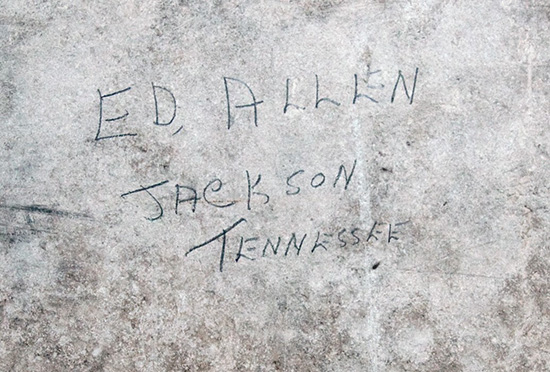 ED, ALLEN
JACKSON
TENNESSEE